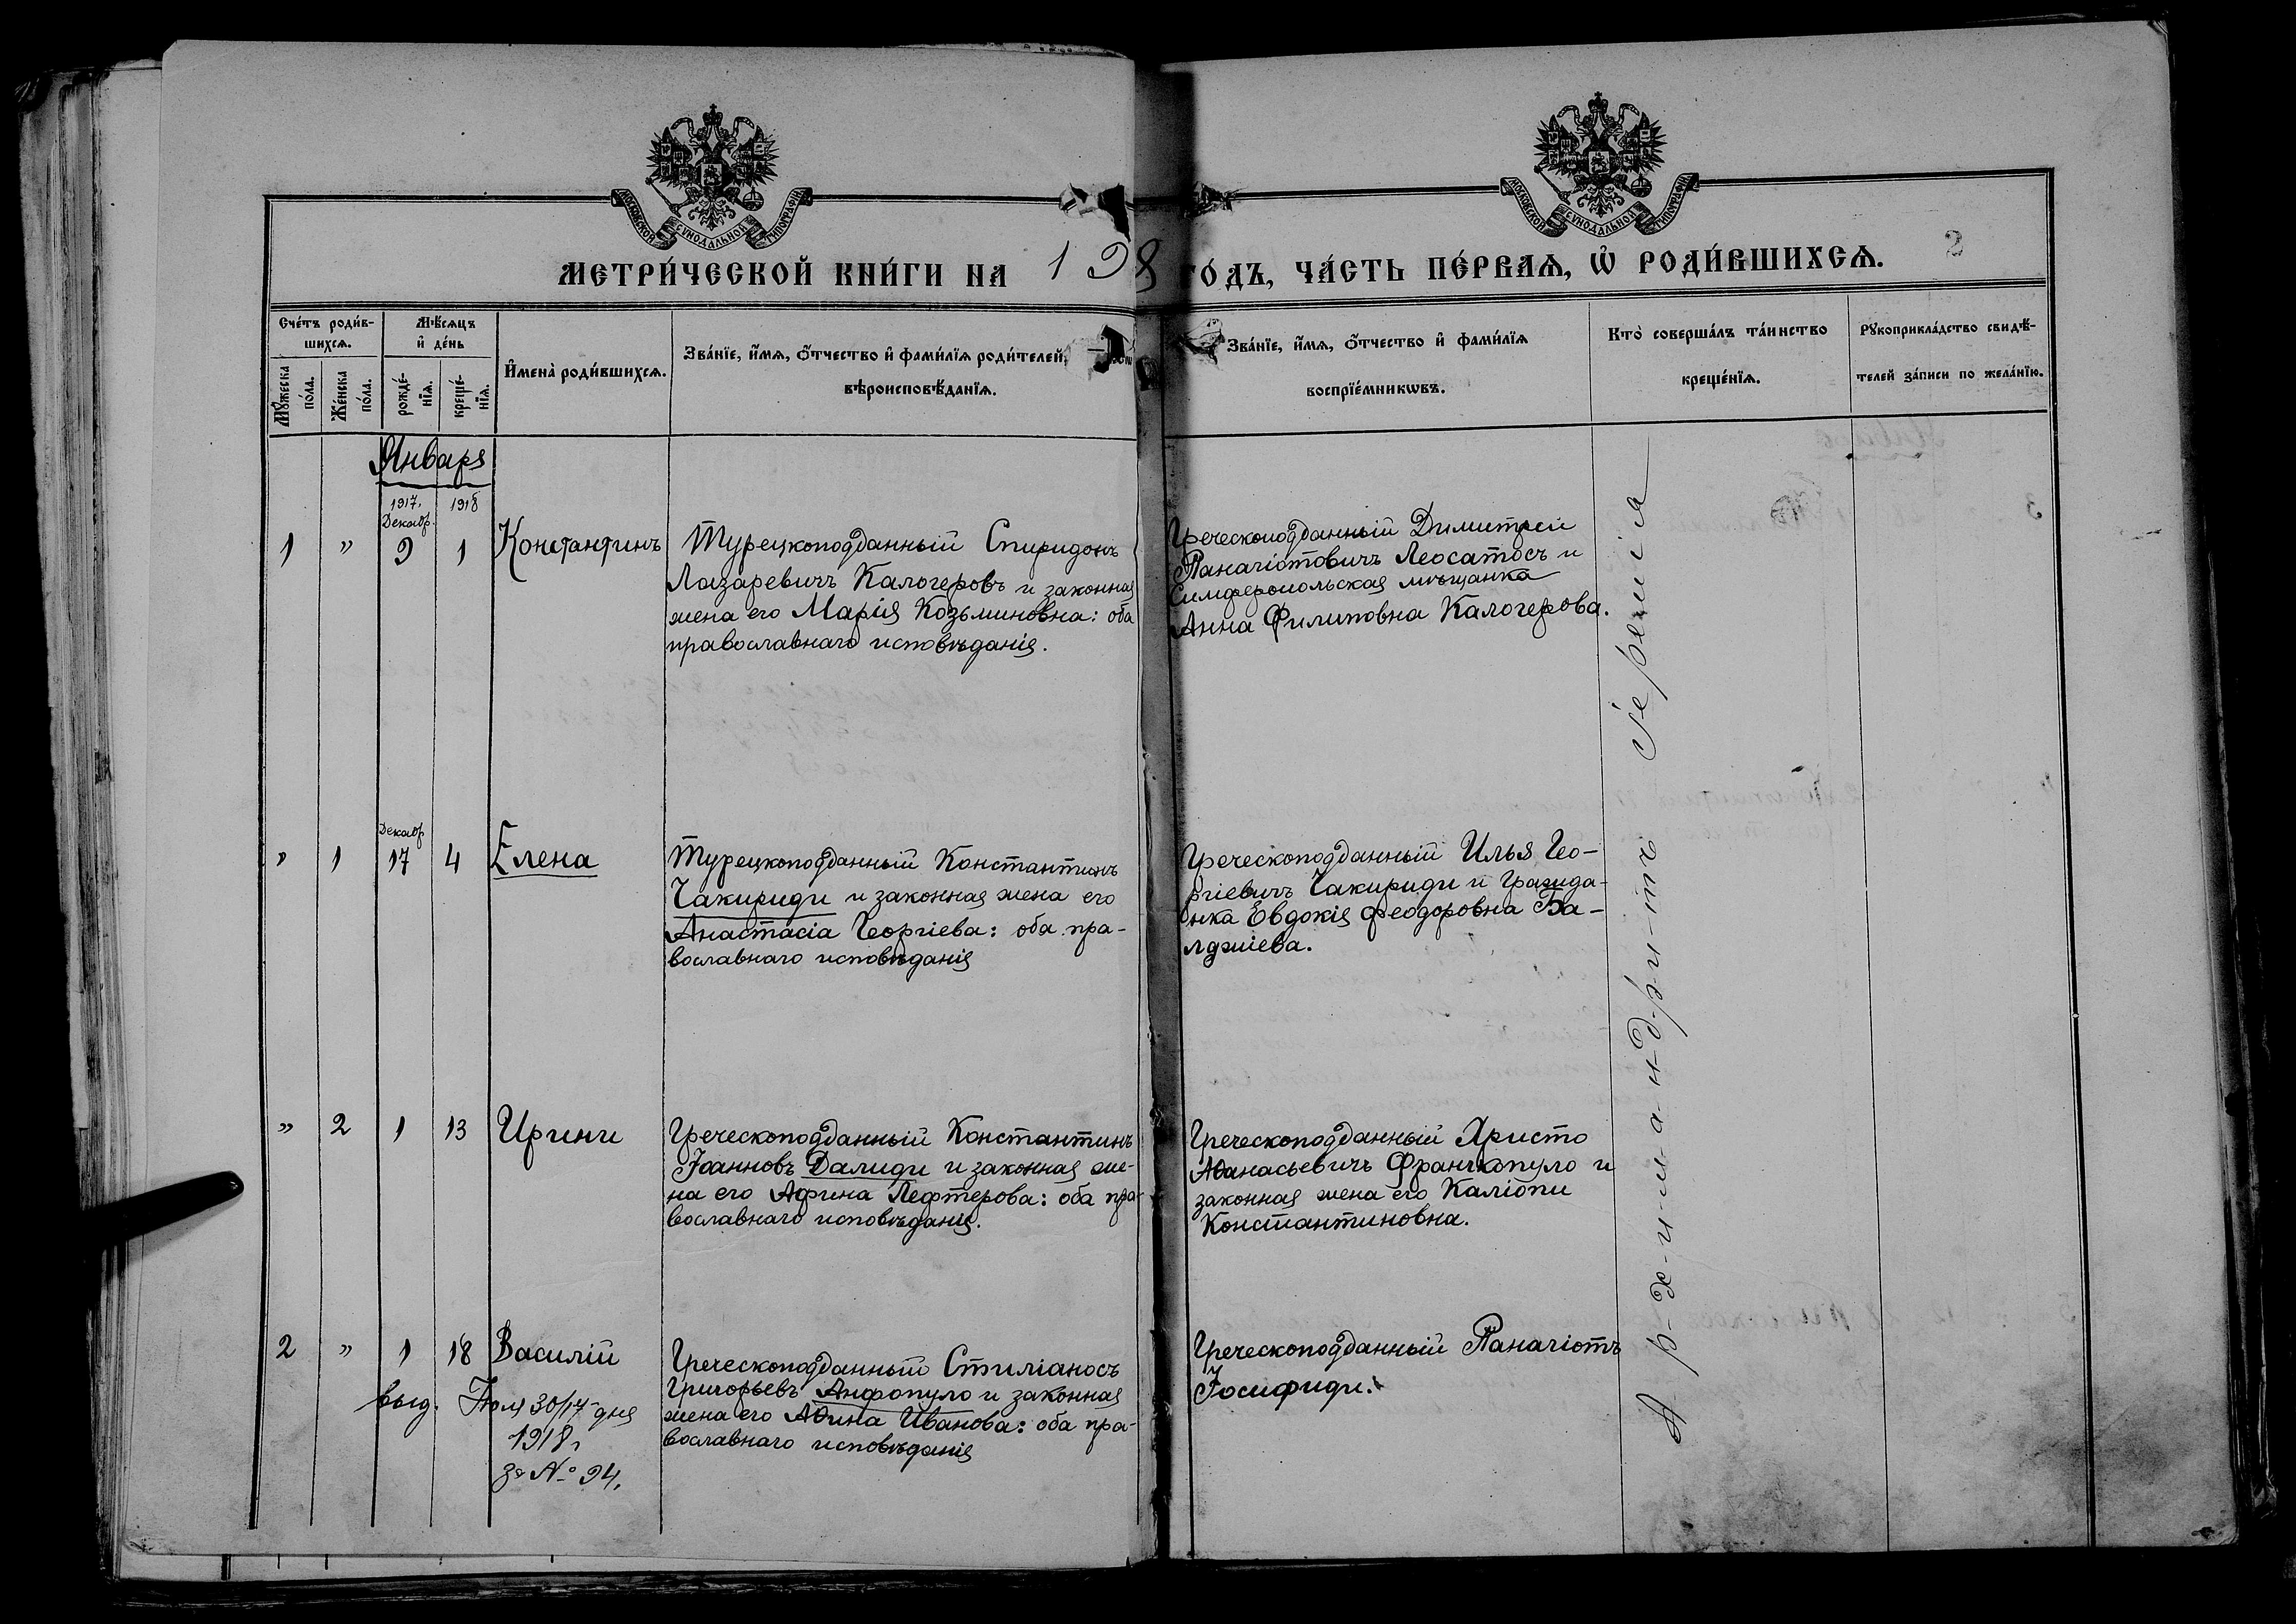 МОСКОВСКОЙ СѴНОДАЛЬНОЙ ТИПОГРАФІИ
МОСКОВСКОЙ СѴНОДАЛЬНОЙ ТИПОГРАФІИ
МЕТРИ́ЧЕСКОЙ КНИ́ГИ НА 198 ГО́ДЪ, ЧА́СТЬ ПЕ́РВАѦ, Ѡ҆ РОДИ́ВШИХСѦ.
2
Сче́тъ роди́в-
шихсѧ.
Мꙋ́жеска
по́ла.
Же́нска
по́ла.
Мѣ́сѧцъ
и҆ де́нь
рожде́-
нїѧ.
креще́-
нїѧ.
И҆мена̀ роди́вшихсѧ.
Зва́нїе, и҆́мѧ, ѻ҆́тчество и҆ фами́лїѧ роди́телей,
вѣроисповѣ́данїѧ.
Зва́нїе, и҆́мѧ, ѻ҆́тчество и҆ фами́лїѧ
воспрїе́мникѡвъ.
Кто̀ соверша́лъ та́инство
креще́нїѧ.
Рꙋкоприкла́дство свидѣ́-
телей за́писи по жела́нїю.
Январь
1917. 1918
Декабр.
1 " 9 1 Константинъ
Турецкоподданный Спиридонъ
Лазаревичъ Калогеровъ и законная
жена его Марія Козьминовна: оба
православнаго исповѣданія.
Греческоподданный Димитрій
Панагіотовичъ Леосатосъ и
Симферопольская мѣщанка
Анна Филиповна Калогерова.
Декабр
" 1 17 4 Елена
Турецкоподданный Константинъ
Чакириди и законная жена его
Анастасіа Георгіева: оба пра-
вославнаго исповѣданія
Греческоподданный Илья Гео-
ргіевичъ Чакириди и гражда-
нка Евдокія Феодоровна Ба-
лджіева.
" 2 1 13 Ирини
Греческоподданный Константинъ
Іоанновъ Далиди и законная же-
на его Афина Лефтерова: оба пра-
вославнаго исповѣданія.
Греческоподданный Христо
Аѳанасьевичъ Франгопуло и
законная жена его Каліопи
Константиновна.
2 " 1 18 Василій
выд. Іюля 30/17 дня
1918 г
за № 94.
Греческоподданный Стиліаносъ
Григорьевъ Анфопуло и законная
жена его Аѳина Иванова: оба пра-
вославнаго исповѣданія
Греческоподданный Панагіотъ
Іосифиди.
А р-х-и-м-а-н-д-р-и-т-ъ Іеремія